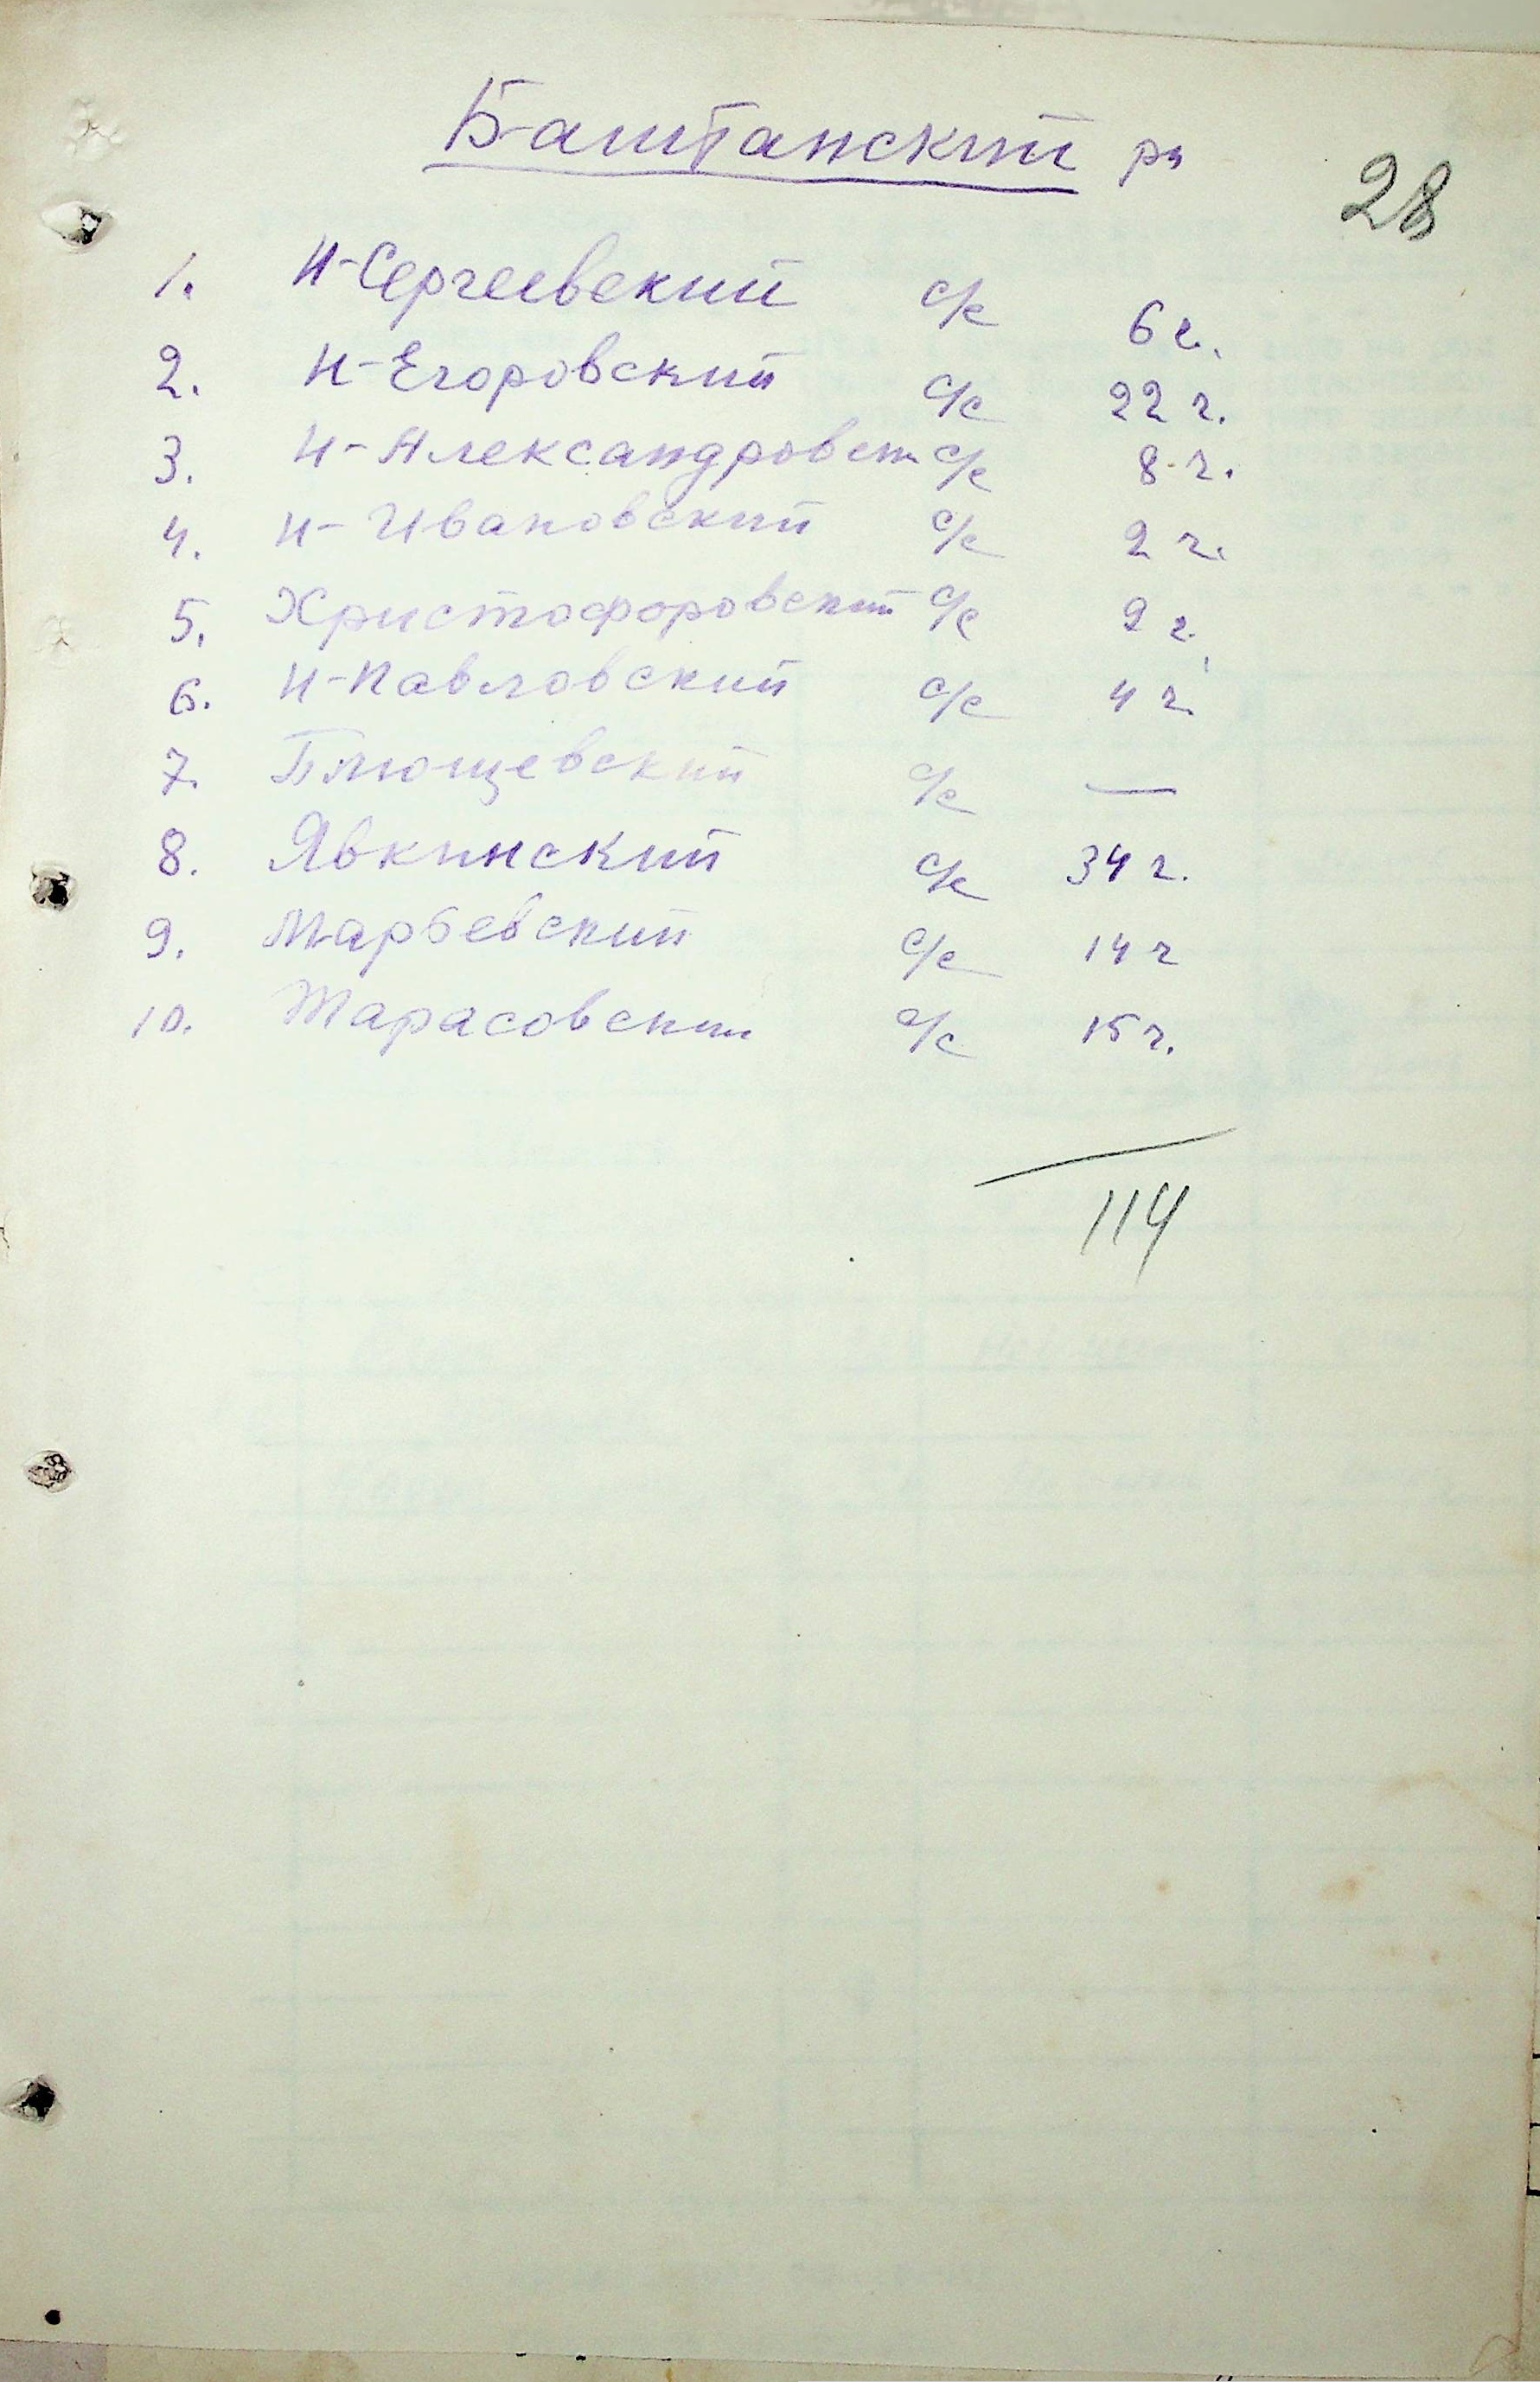 Баштанский рн
28
1. Н-Сергеевский с/с 6 г.
2. Н-Егоровский с/с 22 г.
3. Н-Александровск с/с 8 г.
4. Н-Ивановский с/с 2 г.
5. Христофоровский с/с 9 г.
6. Н-Павловский с/с 4 г.
7. Плющевский с/с —
8. Явкинский с/с 34 г.
9. Марьевский с/с 14 г
10. Тарасовский с/с 15 г.
114